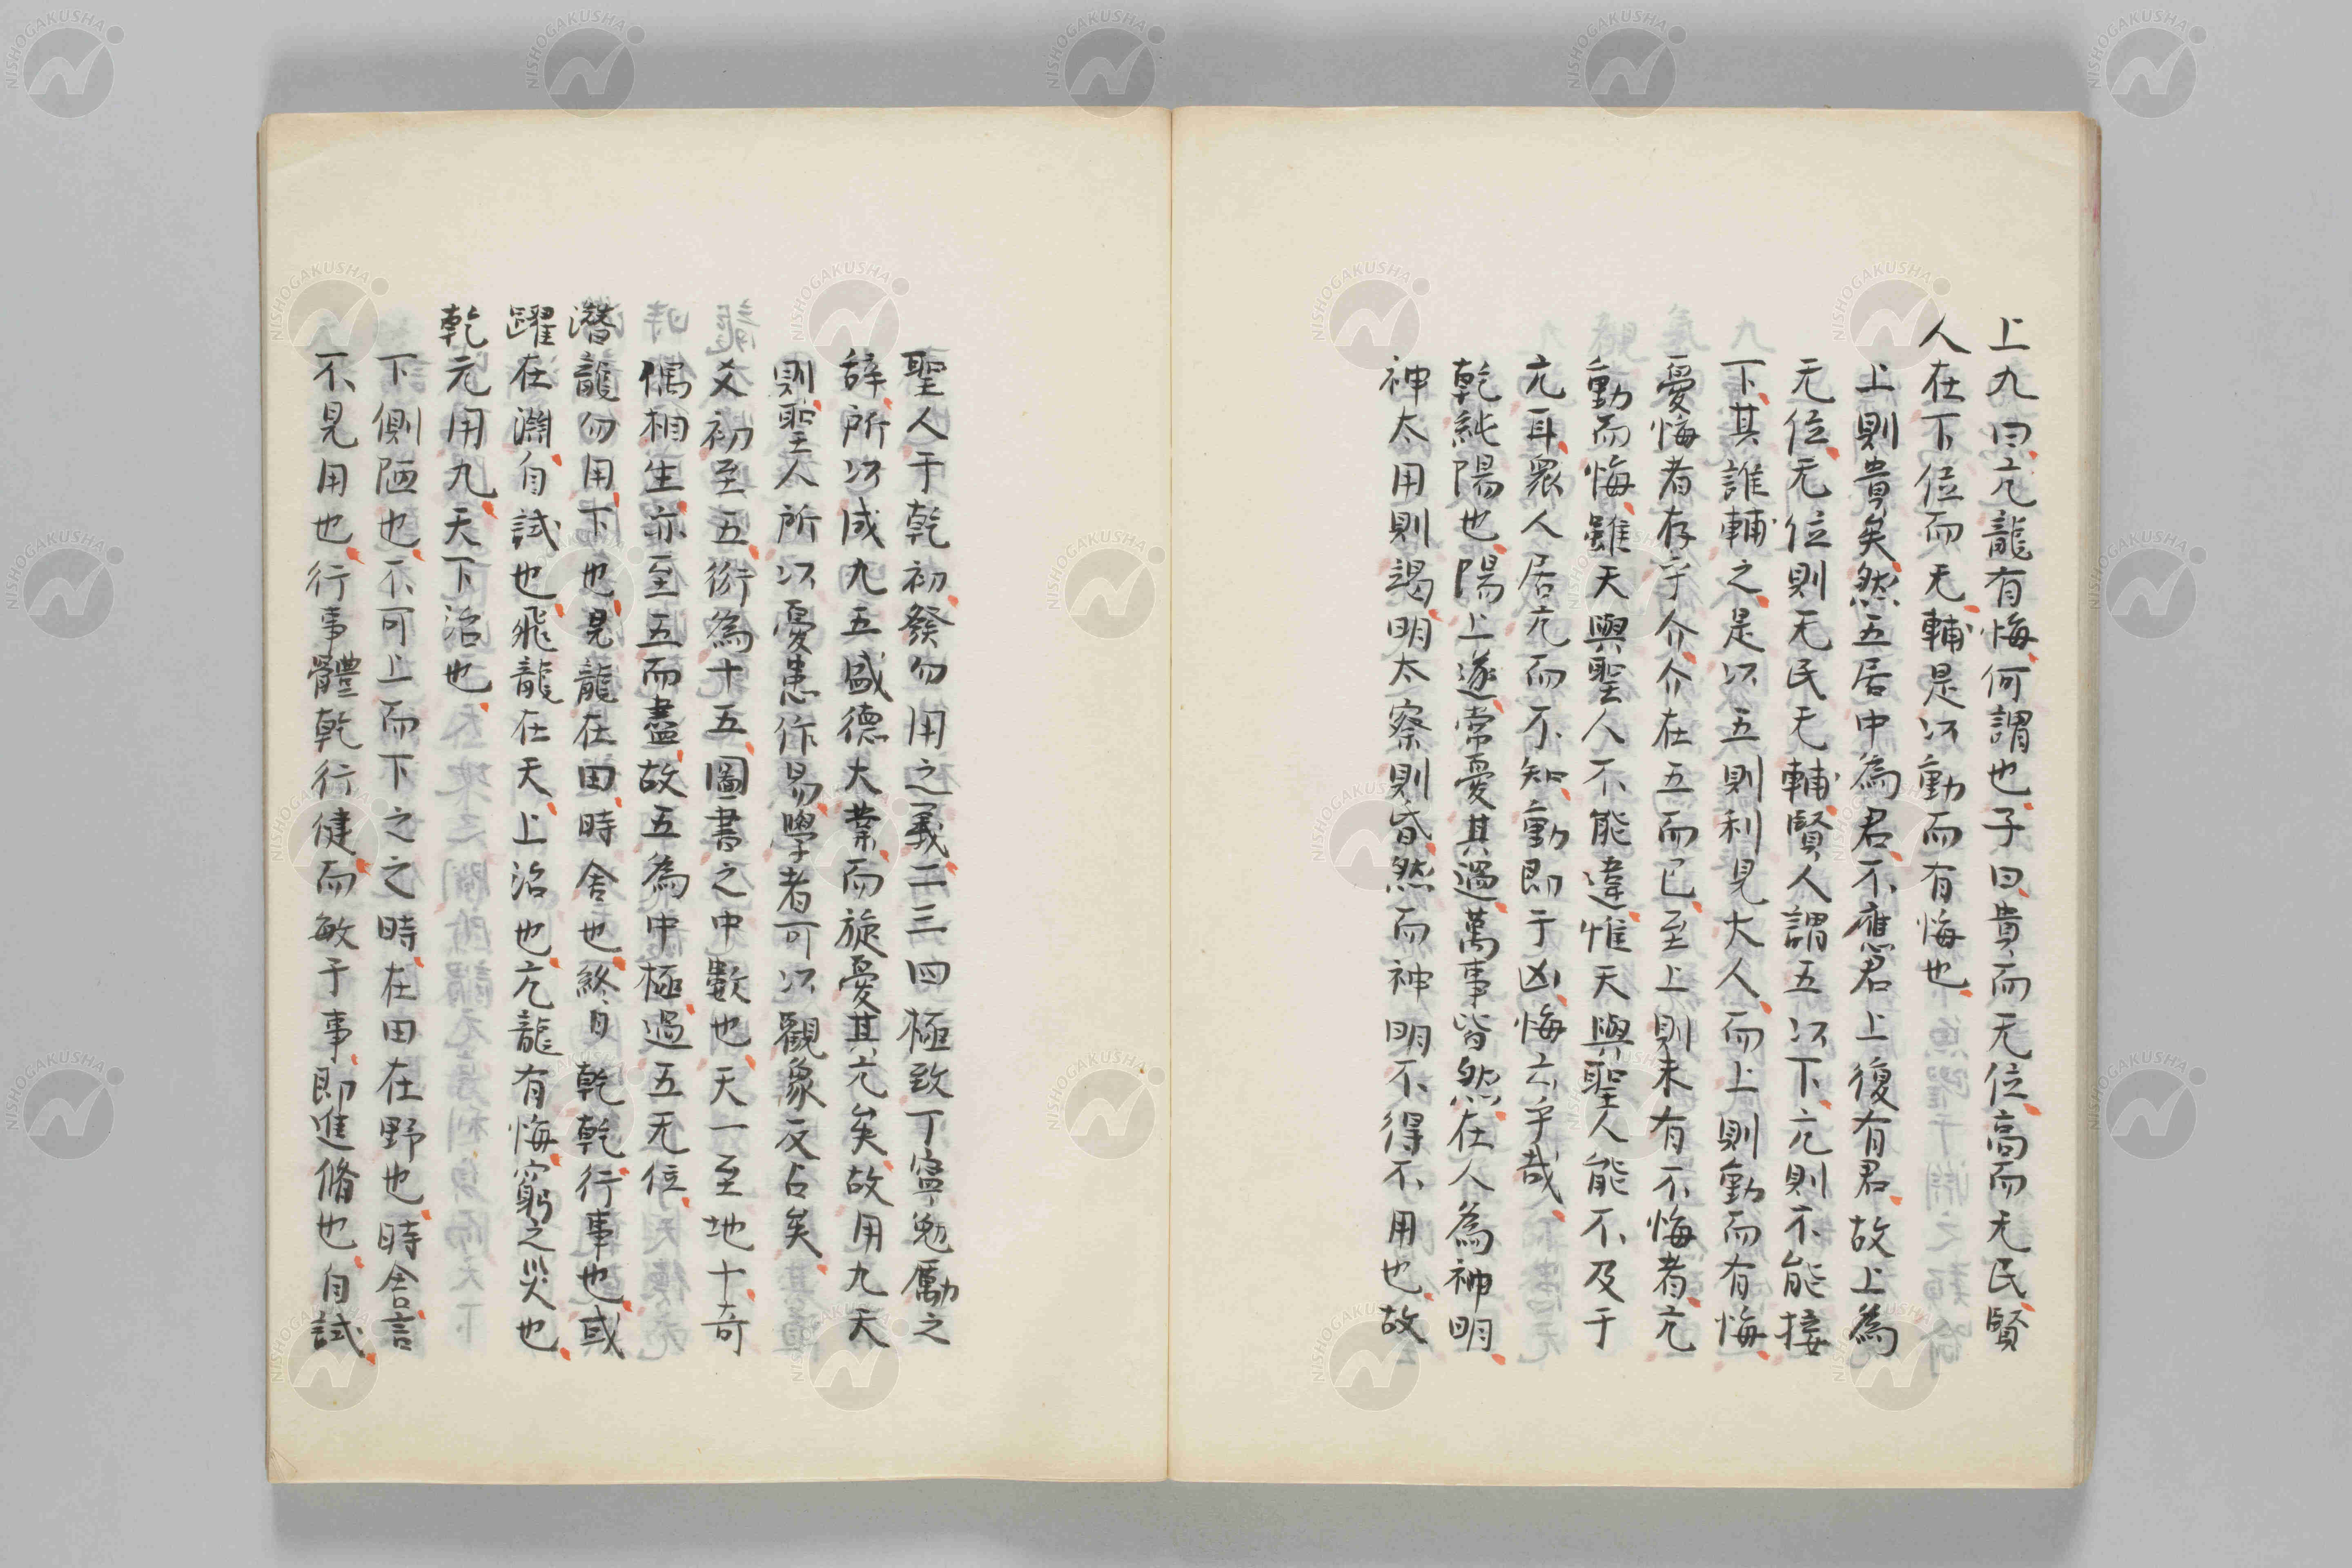 上九曰亢龍有悔何謂也子曰貴而无位高而无民賢
人在下位而无輔是以動而有悔也
上則貴矣然五居中為君不應君上復有君故上為
无位无位則无民无輔賢人謂五以下亢則不能接
下其誰輔之是以五則利見大人而上則動而有悔
憂悔者存乎介介在五而已至上則未有不悔者亢
動而悔雖天與聖人不能違惟天與聖人能不及于
亢耳衆人居亢而不知動即于凶悔云乎哉
乾純陽也陽上遂常憂其過萬事皆然在人為神明
神太用則竭明太察則昏然而神明不得不用也故
聖人于乾初發勿用之義二三四極致丁寧勉厲之
辞所以成九五盛德大業而旋憂其亢矣故用九天
則聖人所以憂患作易學者可以觀象反占矣
爻初至五衍為十五圖書之中數也天一至地十奇
偶相生亦至五而盡故五為中極過五无位
潛龍勿用下也見龍在田時舍也終日乾乾行事也或
躍在淵自試也飛龍在天上治也亢龍有悔窮之災也
乾元用九天下治也
下側陋也不可上而下之之時在田在野也時舍言
不見用也行事體乾行健而敏于事即進脩也自試
NISHOGAKUSHA